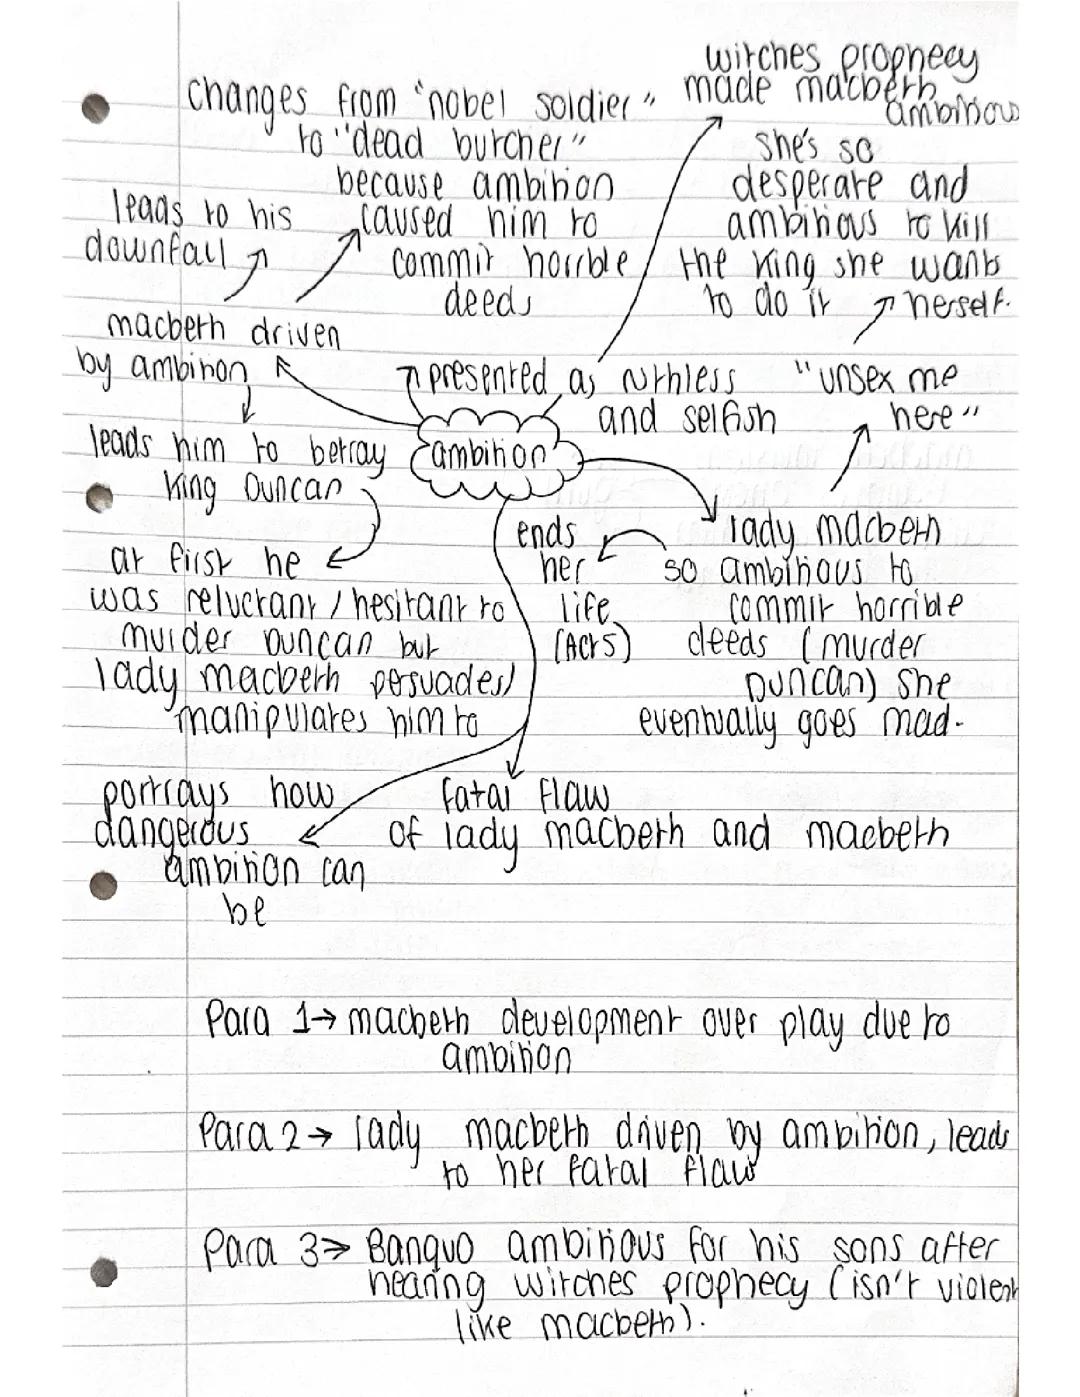 witches prophecy
made macbeth
ambitious
changes from "nobel soldier"
to "dead butcher"
because ambition
caused him to
commit horrible
deeds
she's so
desperate and
ambitious to kill
the king she wants
to do it herself.
leads to his
downfall
macbeth driven
by ambition
presented as ruthless
and selfish
"unsex me
here"
ambition
leads him to betray
King Duncan
at first he
was reluctant / hesitant to
murder Duncan but
lady macbeth persuades/
manipulates him to
ends
her
life
(Act 5)
lady macbeth
so ambitious to
commit horrible
deeds (murder
Duncan) she
eventually goes mad.
portrays how
dangerous
ambition can
be
fatal flaw
of lady macbeth and macbeth
Para 1→ macbeth development over play due to
ambition
Para 2→ lady macbeth driven by ambition, leads
to her fatal flaw
Para 3→ Banquo ambitious for his sons after
hearing witches prophecy (isn't violent
like macbeth).